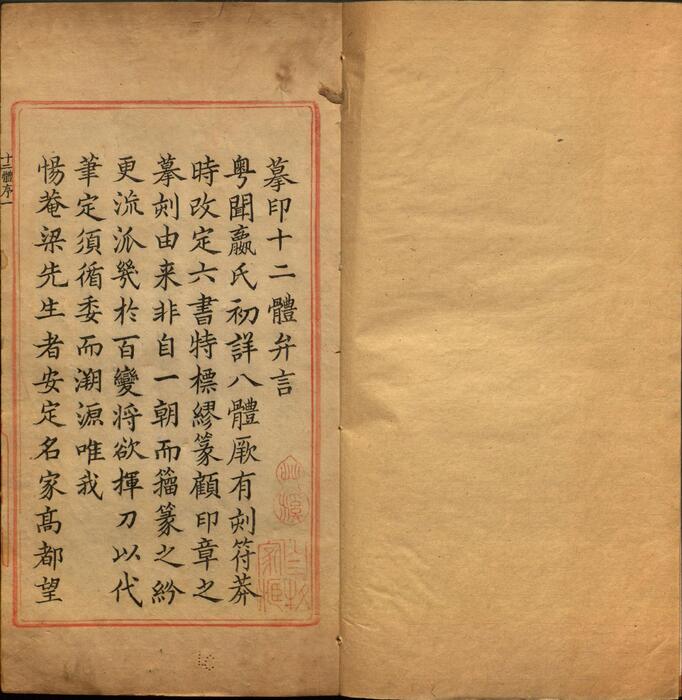 摹印十二體弁言
粵聞嬴氏初詳八體厥有刻符莽
時改定六書特標繆篆顧印章之
摹刻由来非自一朝而籀篆之紛
更流派幾於百變將欲揮刀以代
筆定須循委而溯源唯我
惕菴梁先生者安定名家高都望
十二體序一